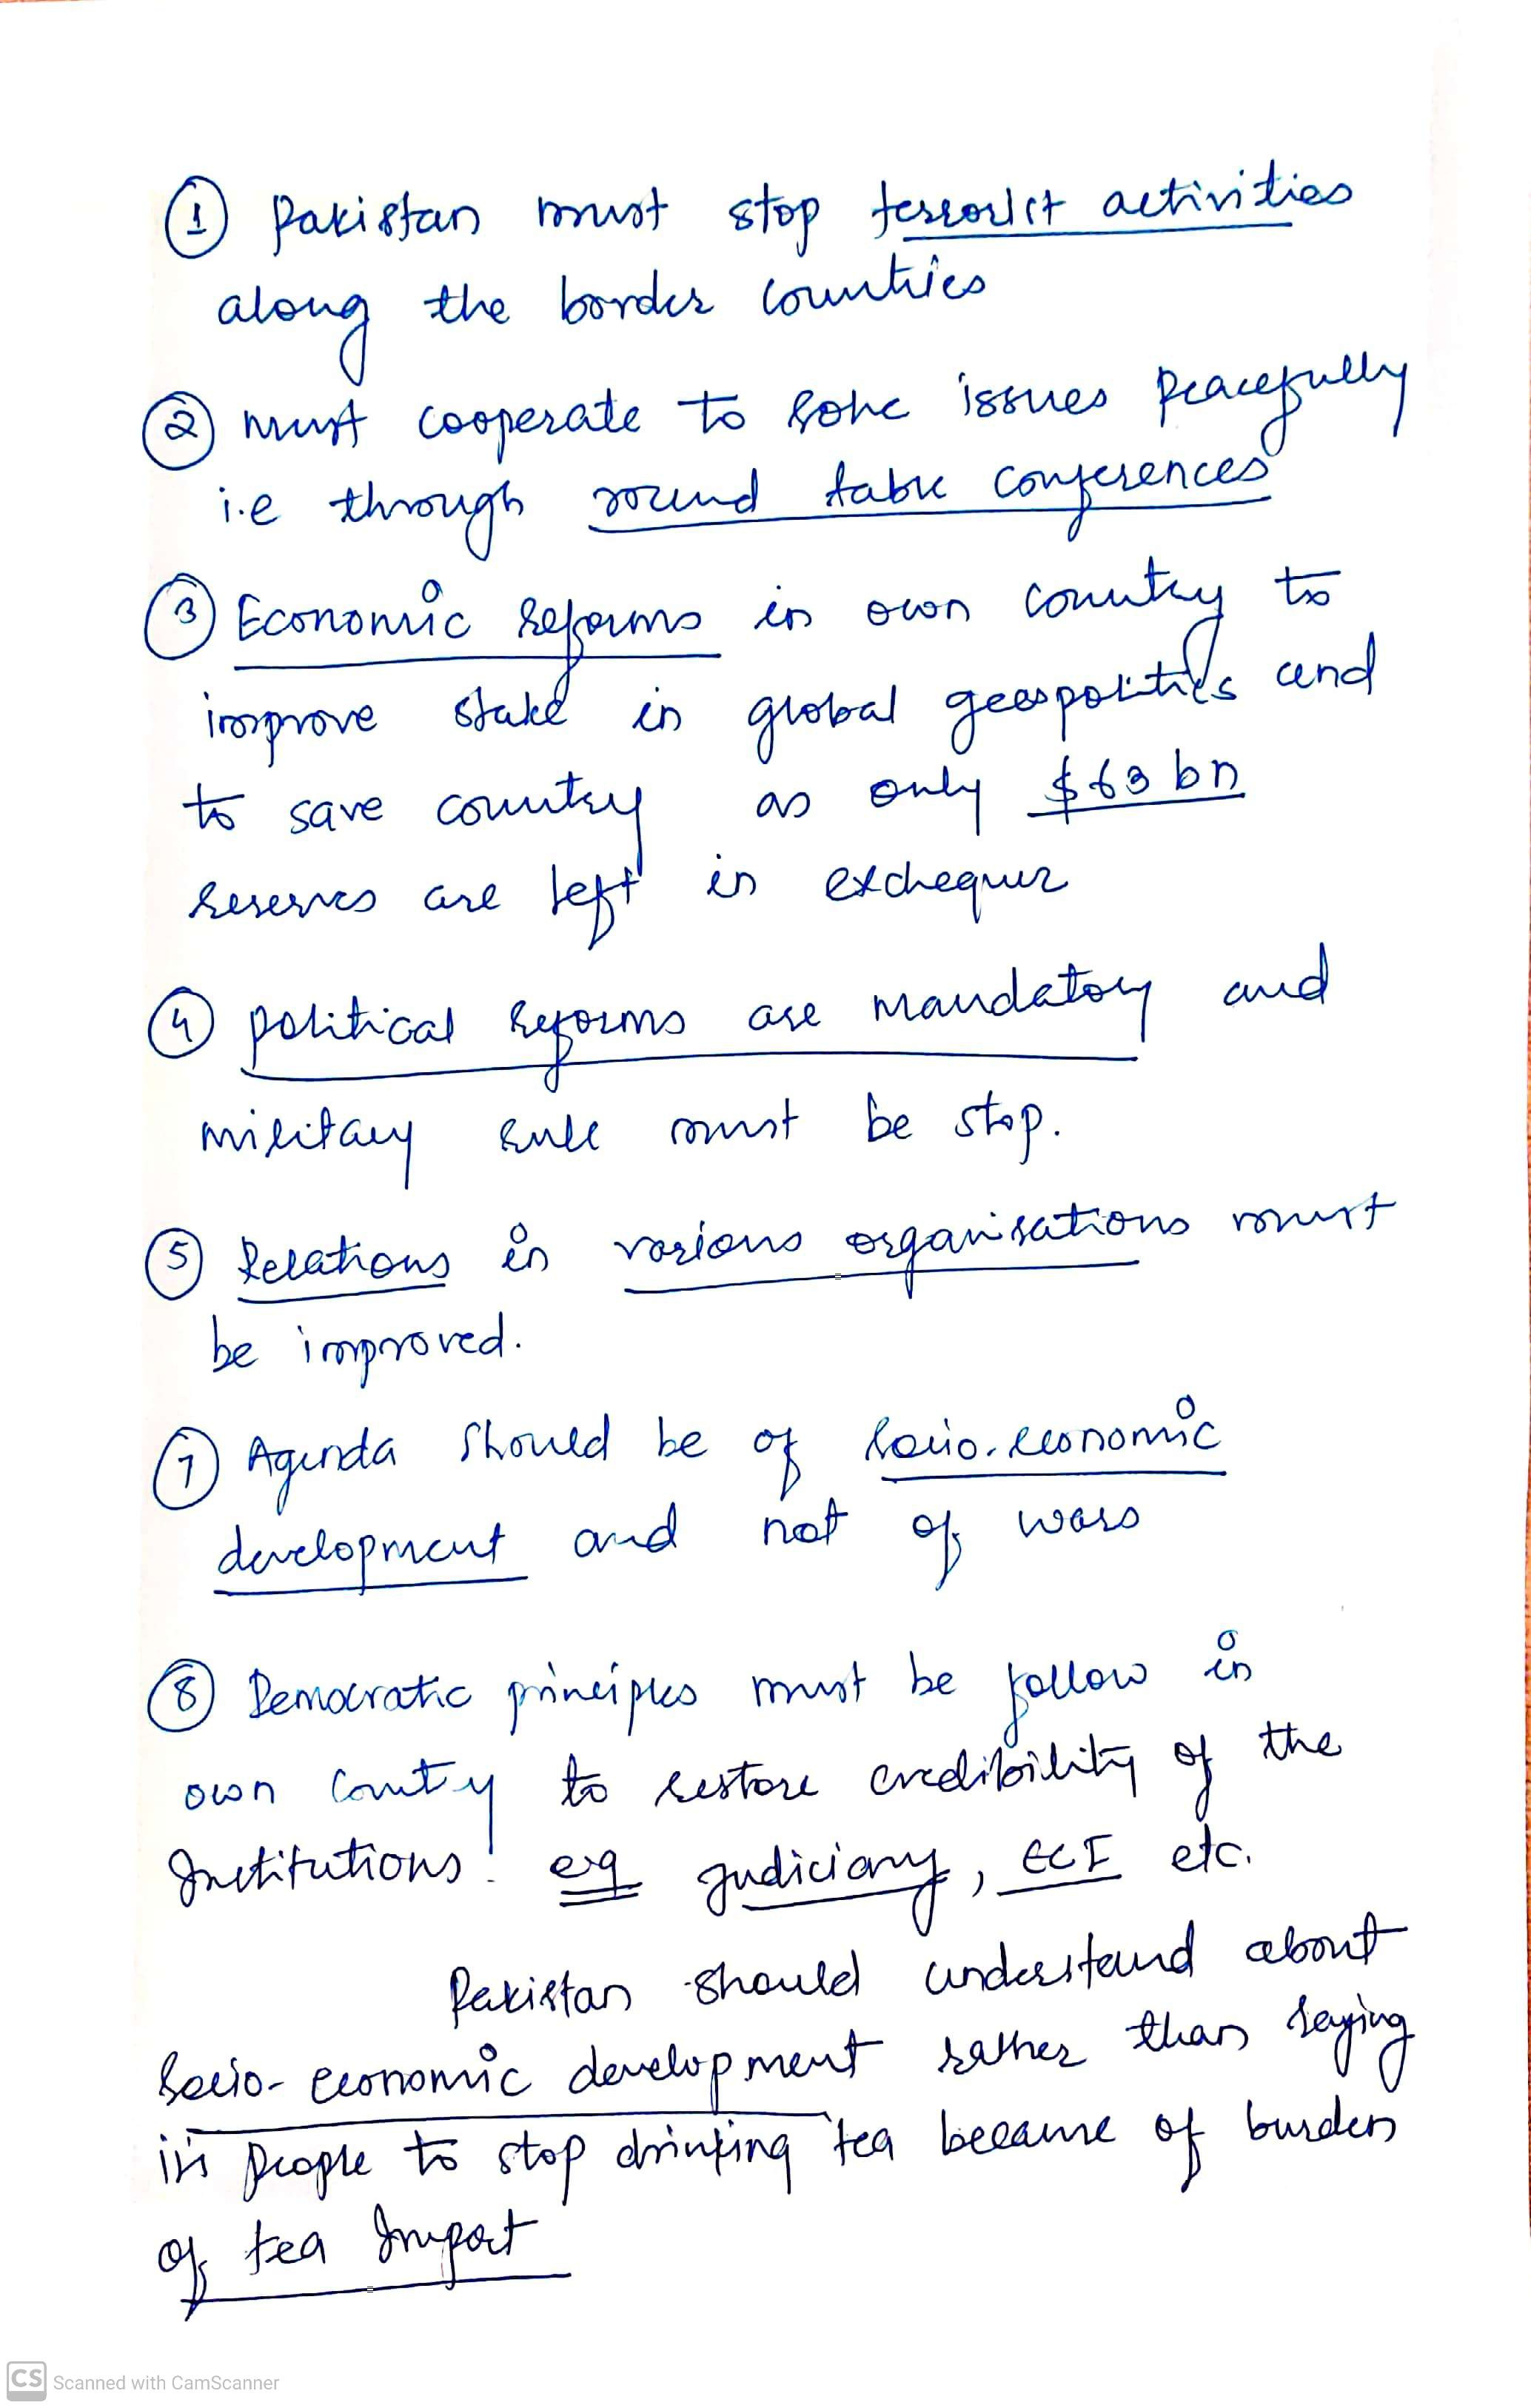 ① Pakistan must stop terrorist activities
along the border countries
② must cooperate to solve issues peacefully
i.e through round table conferences
③ Economic reforms in own country to
improve stake in global geopolitics and
to save country as only $63 bn
reserves are left in exchequer
④ political reforms are mandatory and
military rule must be stop.
⑤ Relations in various organisations must
be improved.
⑦ Agenda should be of socio-economic
development and not of wars
⑧ Democratic principles must be follow in
own county to restore credibility of the
Institutions. eg judiciary, ECI etc.
Pakistan should understand about
Socio-economic development rather than saying
it's people to stop drinking tea because of burden
of tea Import
CS Scanned with CamScanner